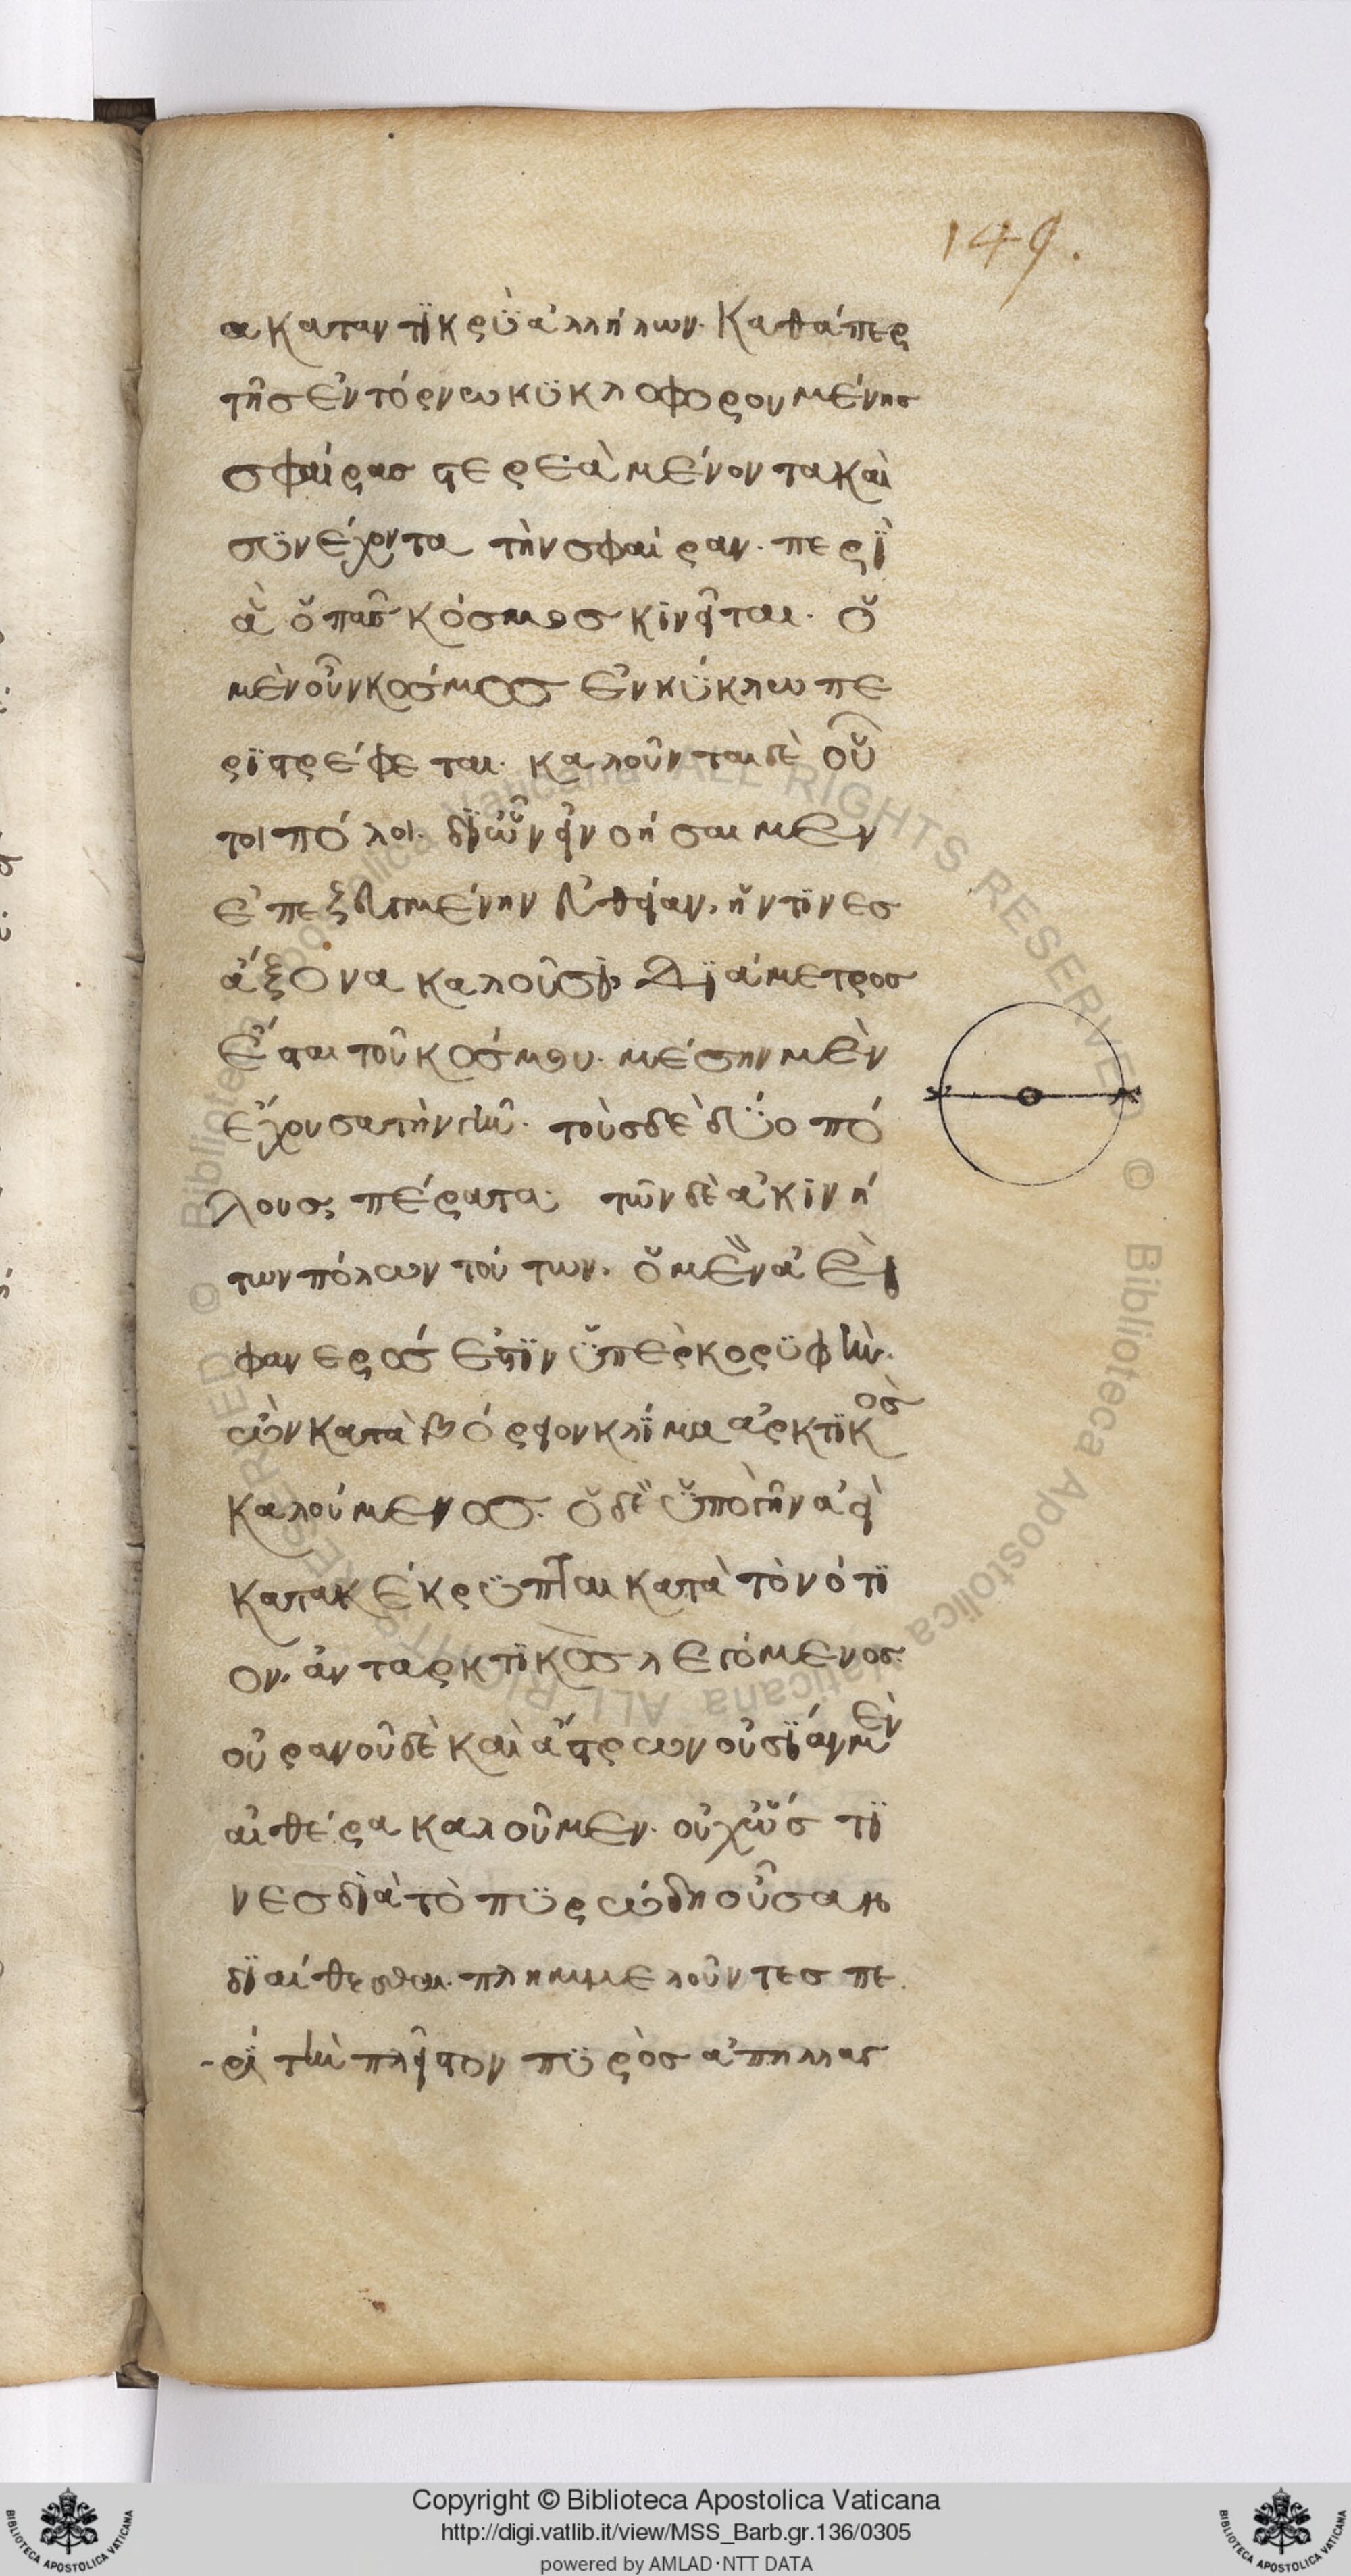 149.
α καταντϊκρῢ ἀλλήλων. Καθάπερ
τῆσ ἐν τόρνω κϋκλοφορουμένησ
σφαίρασ στερεὰ μένοντα καὶ
σϋνέχοντα τὴν σφαίραν. περῒ
ἃ ὁ πᾶσ κόσμοσ κινεῖται. ὁ
μὲν οὖν κόσμοσ ἐν κΰκλω πε
ρϊστρέφεται. καλοῦνται δὲ οὗ
τοι πόλοι. δϊ ὧν εἰ νοήσαιμεν
ἐπεζευγμένην εὐθεῖαν, ἥν τϊνεσ
ἄξονα καλοῦσϊ, Δϊάμετροσ
ἔσται τοῦ κόσμου. μέσην μὲν
ἔχουσα τὴν γῆν. τοὺσ δὲ δΰο πό
λουσ, πέρατα. τῶν δὲ ἀκινή
των πόλων τούτων. ὁ μὲν ἀεὶ
φανερόσ ἐστϊν ὑπὲρ κορϋφὴν.
ὢν κατὰ βόρειον κλΐμα ἀρκτϊκὸσ
καλούμενοσ. ὁ δὲ ὑπὸ γῆν ἀεὶ
κατακέκρϋπται κατὰ τὸ νότϊ
ον. ἀνταρκτϊκὸσ λεγόμενοσ.
οὐρανοῦ δὲ καὶ ἄστρων οὐσΐαν μὲν
αἰθέρα καλοῦμεν. οὐχ ὥσ τϊ
νεσ δϊὰ τὸ πϋρώδη οὖσαν
δϊαίθεσθαι. πλημμελοῦντεσ πε
ρΐ τὴν πλεῖστον πϋρὸσ ἀπηλλαγ
Copyright © Biblioteca Apostolica Vaticana
http://digi.vatlib.it/view/MSS_Barb.gr.136/0305
powered by AMLAD·NTT DATA
BIBLIOTECA APOSTOLICA VATICANA
BIBLIOTECA APOSTOLICA VATICANA
© Biblioteca Apostolica Vaticana ALL RIGHTS RESERVED
© Biblioteca Apostolica Vaticana ALL RIGHTS RESERVED